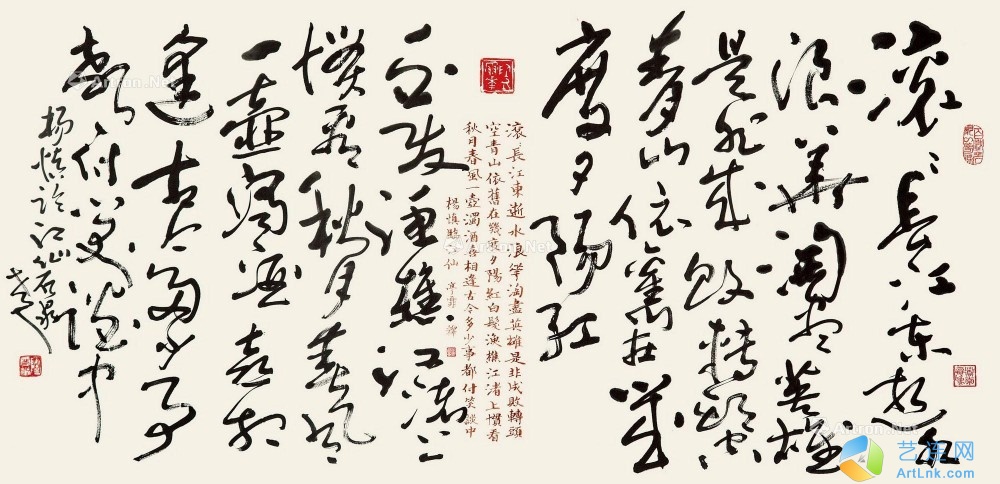 滚〻长江东逝水
浪華淘尽英雄
是非成败转头空
青山依舊在几
度夕阳红
滚〻長江東逝水浪華淘盡英雄是非成敗轉頭
空青山依舊在幾度夕陽紅白髮漁樵江渚上慣看
秋月春風一壺濁酒喜相逢古今多少事都付笑談中
楊慎臨江仙
白发渔樵江渚上
惯看秋月春风
一壶浊酒喜相
逢古今多少事
都付笑谈中
杨慎临江仙
Artron.Net
艺连网
ArtLnk.com